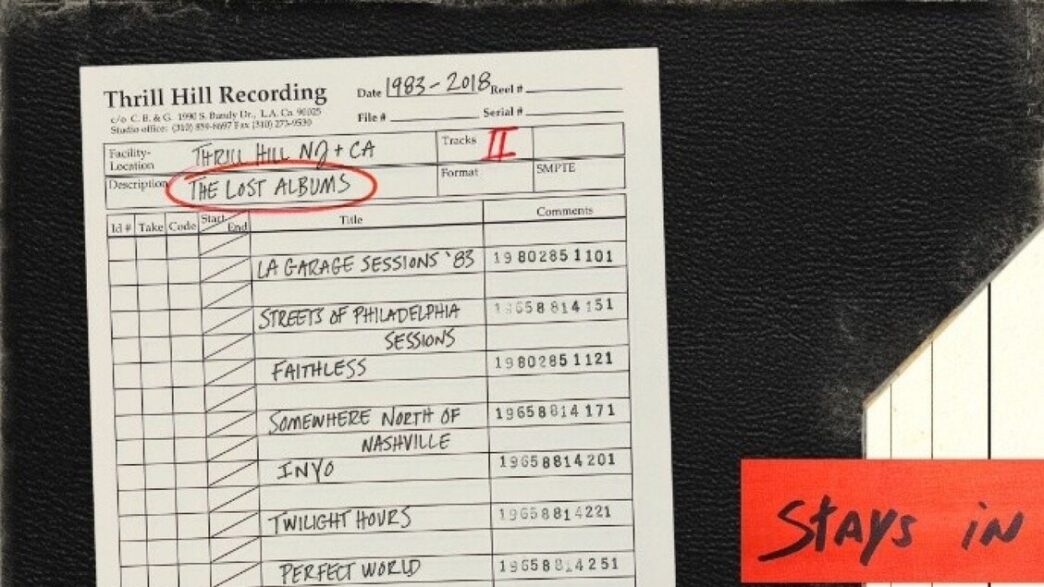 Thrill Hill Recording
c/o C. B. & G. 1990 S. Bundy Dr., L.A. Ca. 90025
Studio office: (310) 859-6697 Fax (310) 273-9530
Date 1983-2018 Reel #
File # Serial #
Facility-Location THRILL HILL NJ + CA
Tracks II
Description THE LOST ALBUMS
Format SMPTE
Id # Take Code Start End Title Comments
LA GARAGE SESSIONS '83 19802851101
STREETS OF PHILADELPHIA 19658814151
SESSIONS
FAITHLESS 19802851121
SOMEWHERE NORTH OF 19658814171
NASHVILLE
INYO 19658814201
TWILIGHT HOURS 19658814221
PERFECT WORLD 19658814251
Stays in